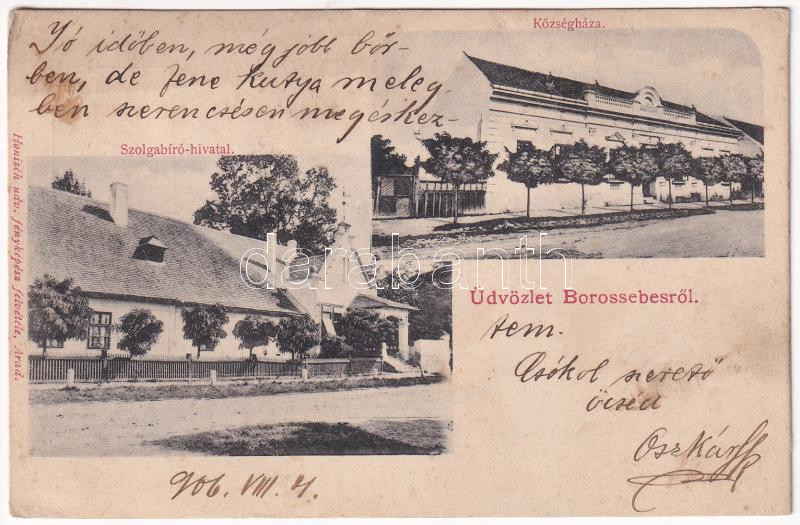 Jó időben, még jobb bőr-
ben, de fene kutya meleg-
ben szerencsésen megérkez-
Községháza.
Szolgabíró-hivatal.
Honisch udv. fényképész felvétele, Arad.
darabanth
Üdvözlet Borossebesről.
tem.
Csókol szerető
öcséd
Oszkár
906. VIII. 4.